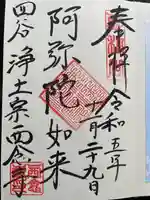 奉拝
令和五年
十一月二十九日
阿弥陀如来
四谷
浄土宗西念寺